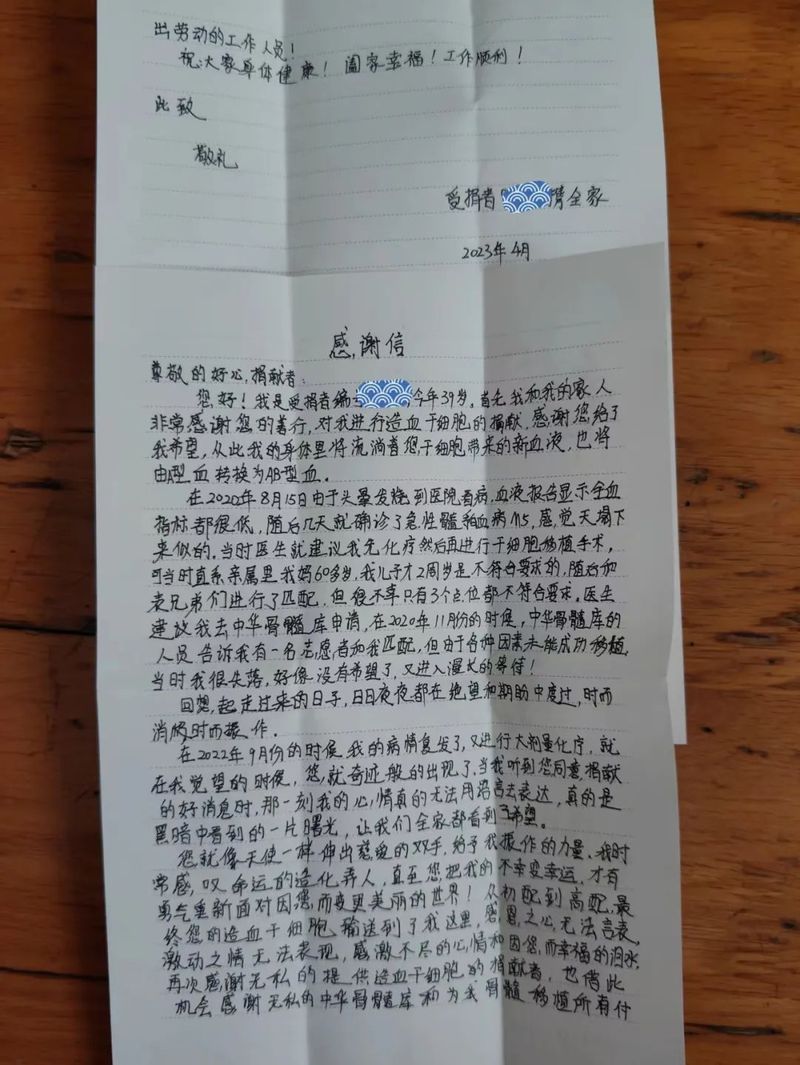 出劳动的工作人员！
祝大家身体健康！阖家幸福！工作顺利！
此致
敬礼
受捐者 情全家
2023年4月
感谢信
尊敬的好心捐献者：
您好！我是受捐者编 今年39岁。首先我和我的家人
非常感谢您的善行，对我进行造血干细胞的捐献，感谢您给了
我希望，从此我的身体里将流淌着您干细胞带来的新血液，也将
由A型血转换为AB型血。
在2020年8月15日由于头晕发烧到医院看病，血液报告显示全血
指标都很低，随后几天就确诊了急性髓和血病M5，感觉天塌下
来似的。当时医生就建议我先化疗然后再进行干细胞移植手术，
可当时直系亲属里我妈60多岁，我儿子才2周岁是不符合要求的，随后和
表兄弟们进行了匹配，但很不幸只有3个点位都不符合要求。医生
建议我去中华骨髓库申请，在2020年11月份的时候，中华骨髓库的
人员告诉我有一名志愿者和我匹配，但由于各种因素未能成功移植，
当时我很失落，好像没有希望了，又进入漫长的等待！
回想起走过来的日子，日日夜夜都在绝望和期盼中度过，时而
消极时而振作。
在2022年9月份的时候我的病情复发了，又进行大剂量化疗，就
在我觉望的时候，您就奇迹般的出现了，当我听到您同意捐献
的好消息时，那一刻我的心情真的无法用语言去表达，真的是
黑暗中看到的一片曙光，让我们全家都看到了希望。
您就像天使一样伸出慈爱的双手，给予我振作的力量。我时
常感叹命运的造化弄人，直至您把我的不幸变幸运，才有
勇气重新面对因您而变更美丽的世界！从初配到高配，最
终您的造血干细胞输送到了我这里，感恩之心无法言表，
激动之情无法表现，感激不尽的心情和因您而幸福的泪水，
再次感谢无私的提供造血干细胞的捐献者，也借此
机会感谢无私的中华骨髓库和为我骨髓移植所有付